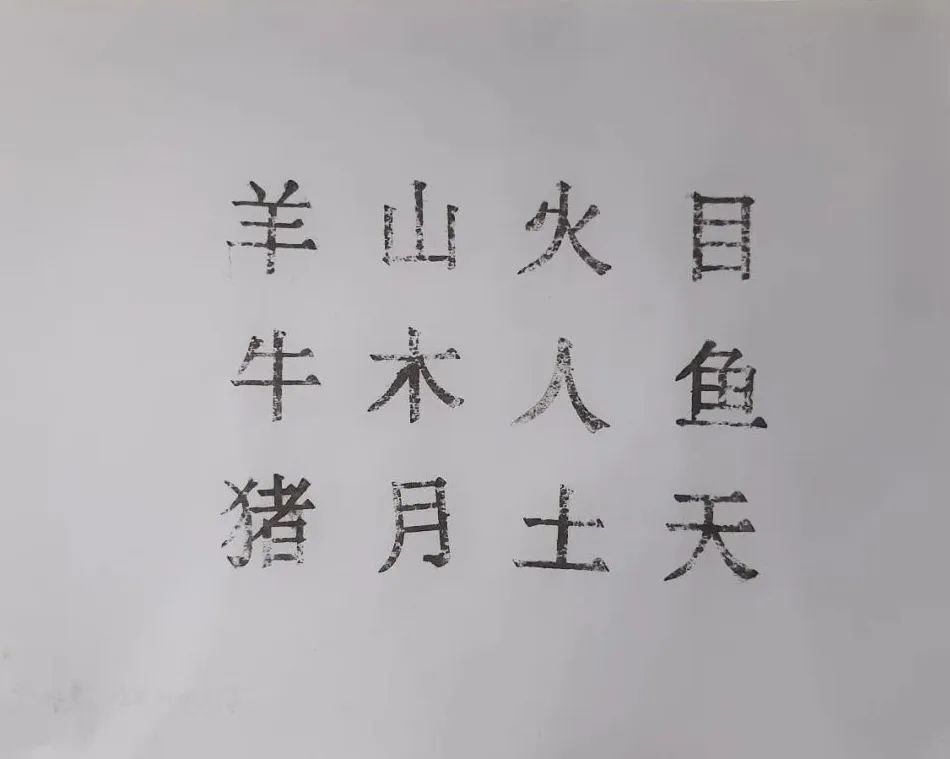 羊山火目
牛木人鱼
猪月土天